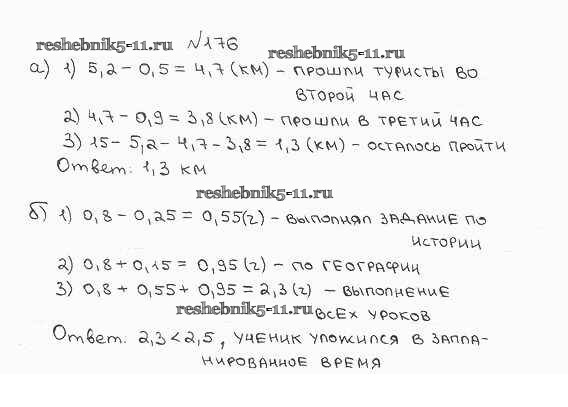 reshebnik5-11.ru №176 reshebnik5-11.ru
а) 1) 5,2 - 0,5 = 4,7 (км) - прошли туристы во
второй час
2) 4,7 - 0,9 = 3,8 (км) - прошли в третий час
3) 15 - 5,2 - 4,7 - 3,8 = 1,3 (км) - осталось пройти
Ответ: 1,3 км
reshebnik5-11.ru
б) 1) 0,8 - 0,25 = 0,55 (г) - выполнял задание по
истории
2) 0,8 + 0,15 = 0,95 (г) - по географии
3) 0,8 + 0,55 + 0,95 = 2,3 (г) - выполнение
reshebnik5-11.ru всех уроков
Ответ: 2,3 < 2,5, ученик уложился в запла-
нированное время